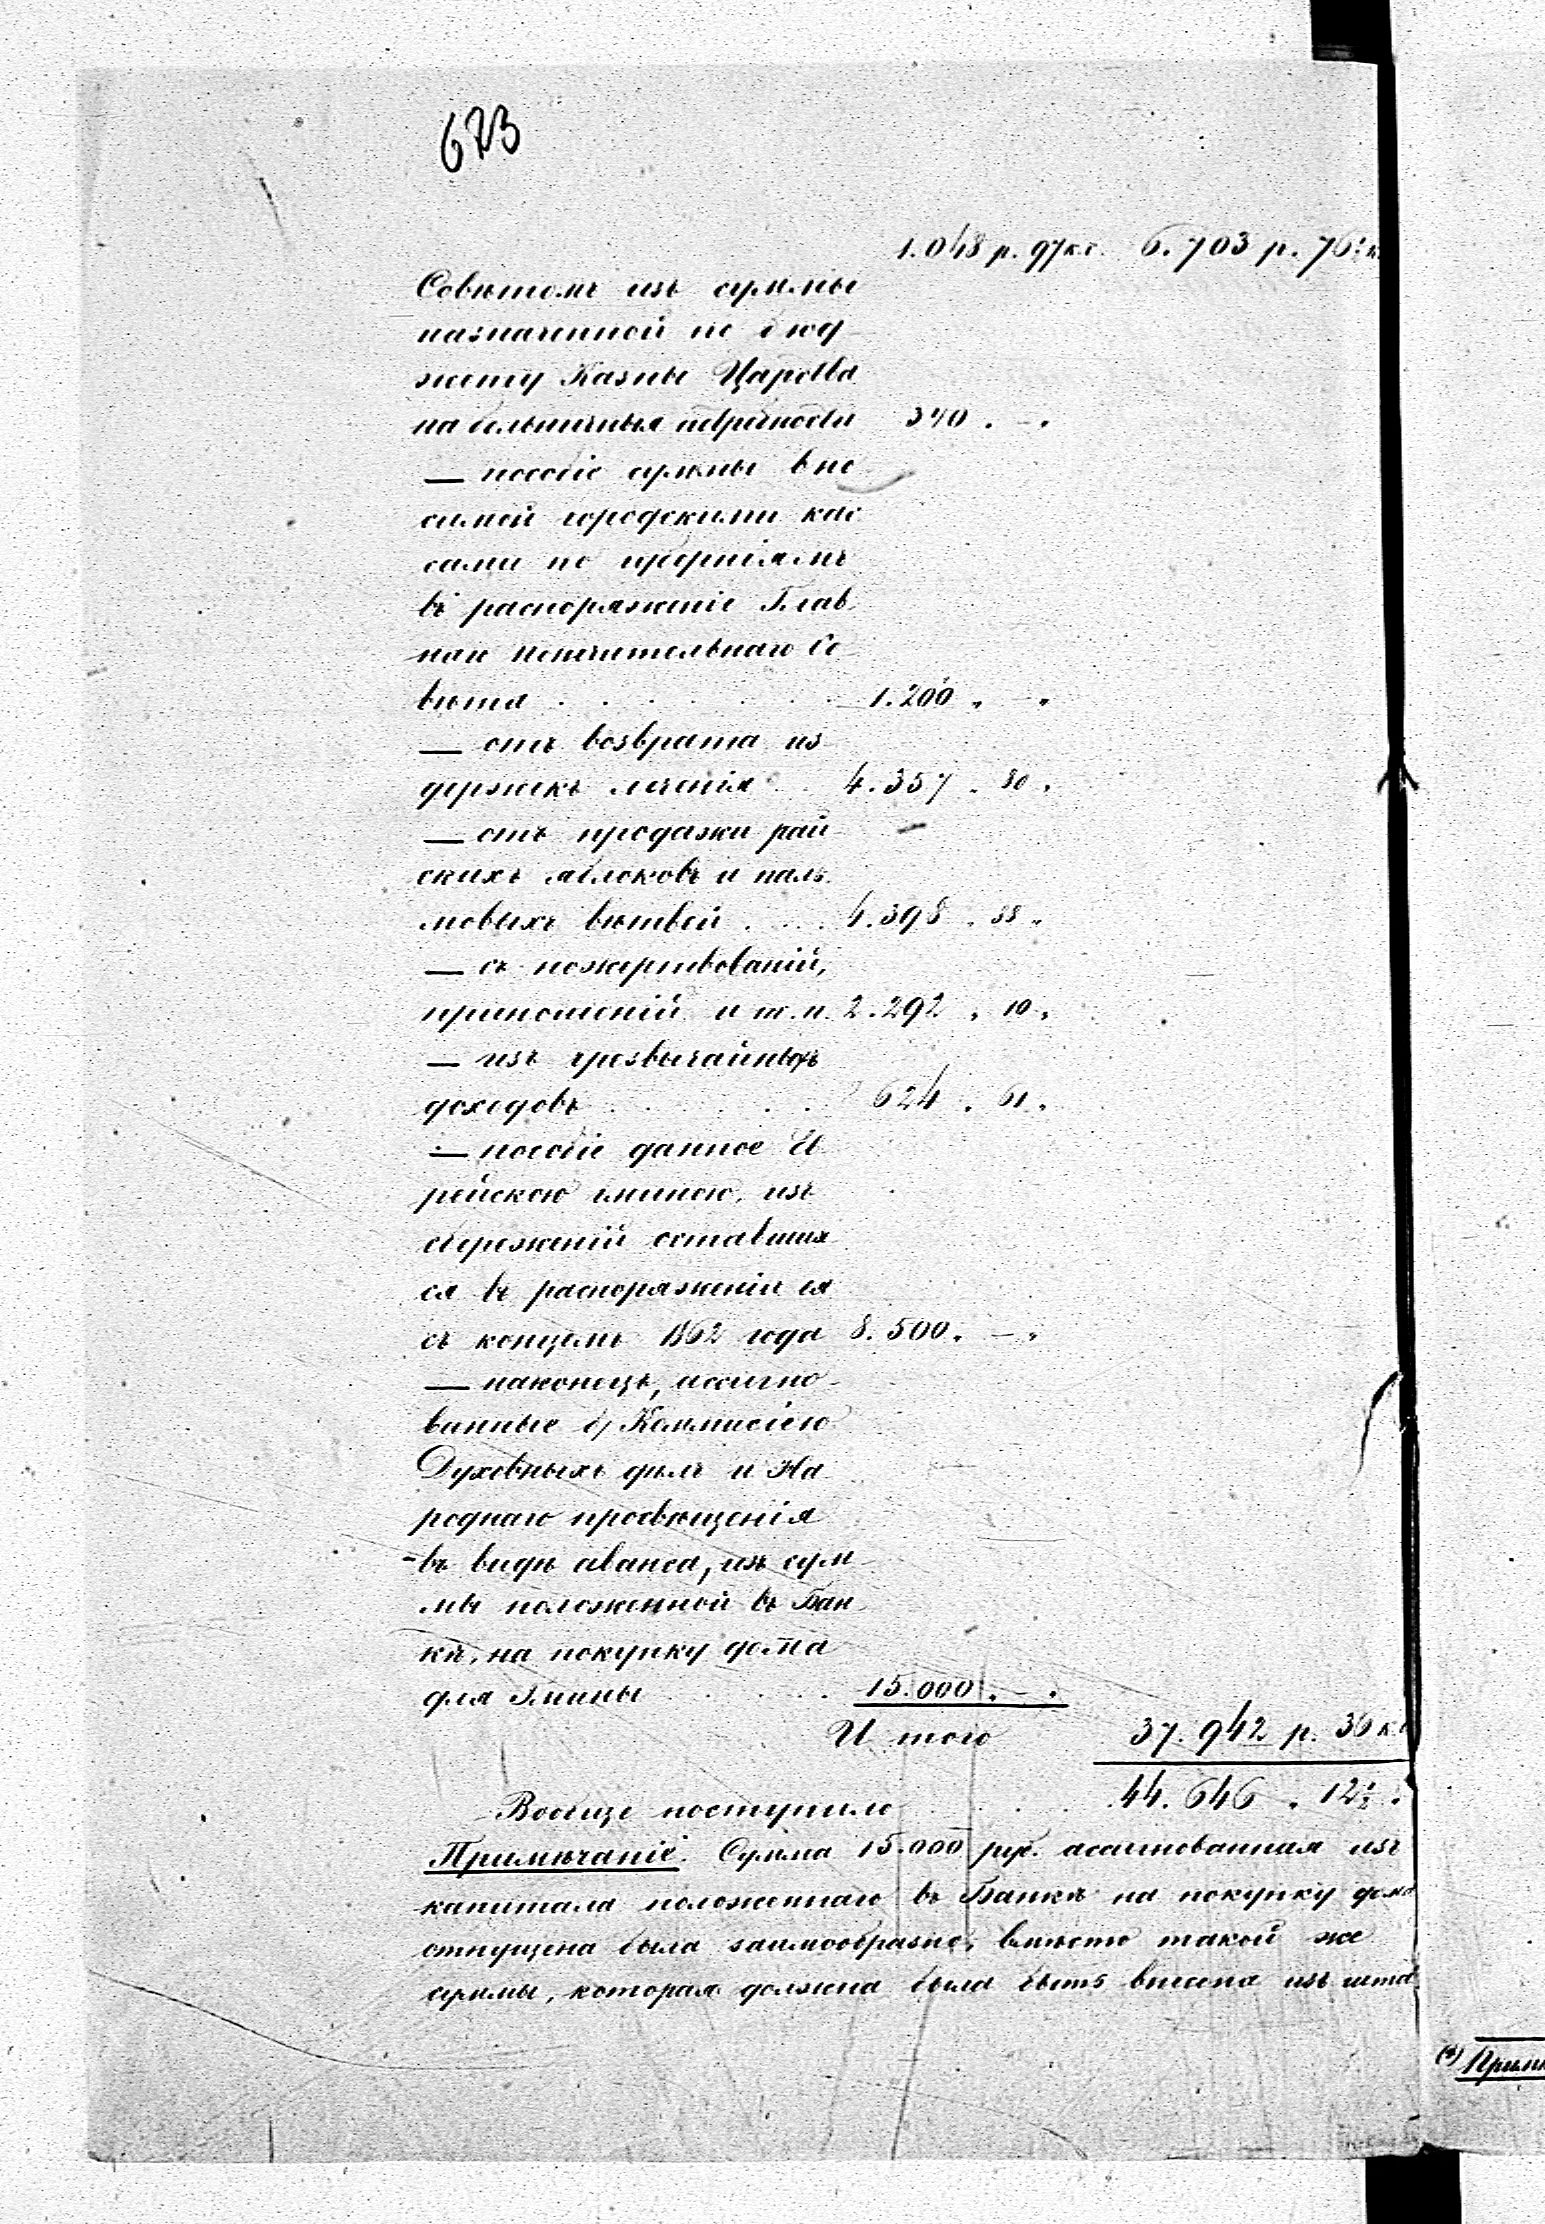 623
1.048 р. 97 к.с. 6.703 р. 76½ к.
Совѣтомъ изъ суммы
назначенной по бюд
жету Казны Царства
на больничныя потребности 340 . — "
— пособіе суммы вно
симой городскими кас
сами по губерніямъ
въ распоряженіе Глав
наго Попечительнаго Со
вѣта . . . . . . . 1.200 " — "
— отъ возврата из
держекъ леченія . . 4.357 . 30 .
— отъ продажи рай
скихъ яблоковъ и паль
мовыхъ вѣтвей . . . . 4.398 . 38 "
— съ пожертвованій,
приношеній и т.п. 2.292 . 10 "
— изъ чрезвычайныхъ
доходовъ . . . . . . 624 . 61 .
— пособіе данное Ев
рейскою гминою, изъ
сбереженій оставших
ся въ распоряженіи ея
съ концемъ 1862 года 8.500. — "
— наконецъ, ассигно
ванные б/ Коммисіею
Духовныхъ дѣлъ и На
роднаго просвѣщенія
въ видѣ аванса, изъ сум
мы положенной въ Бан
кѣ, на покупку дома
для Гмины . . . . . 15.000 . — .
Итого 37.942 р. 36 к.
Вообще поступило . . . . 44.646 . 12½ .
Примѣчаніе. Сумма 15.000 руб. ассигнованная изъ
капитала положеннаго въ Банкѣ на покупку дома
отпущена была заимообразно, вмѣсто такой же
суммы, которая должна была быть внесена изъ шта
(*) Примѣ